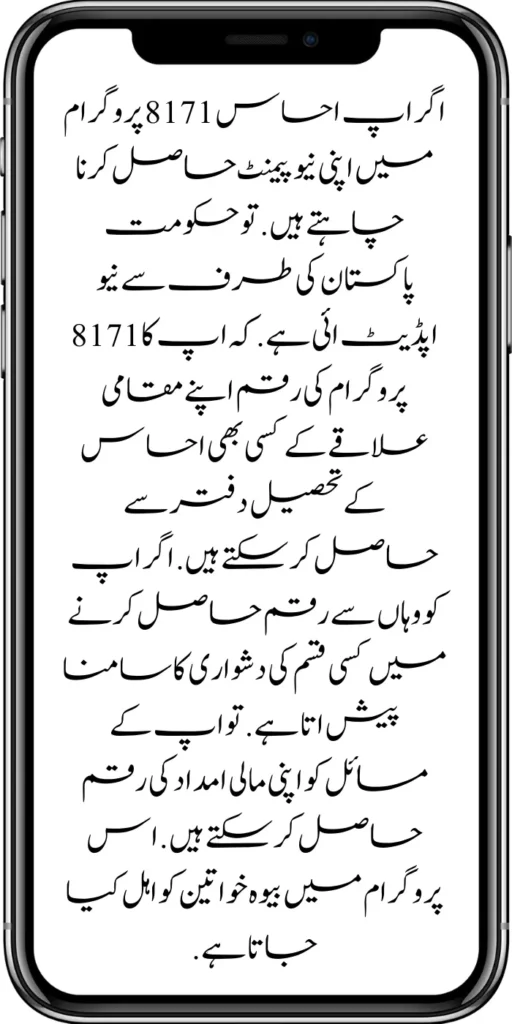 اگر اپ احساس 8171 پروگرام
میں اپنی نیو پیمنٹ حاصل کرنا
چاہتے ہیں. تو حکومت
پاکستان کی طرف سے نیو
اپڈیٹ ائی ہے. کہ اپ کا 8171
پروگرام کی رقم اپنے مقامی
علاقے کے کسی بھی احساس
کے تحصیل دفتر سے
حاصل کر سکتے ہیں. اگر اپ
کو وہاں سے رقم حاصل کرنے
میں کسی قسم کی دشواری کا سامنا
پیش اتا ہے. تو اپ کے
مسائل کو اپنی مالی امداد کی رقم
حاصل کر سکتے ہیں. اس
پروگرام میں بیوہ خواتین کو اہل کیا
جاتا ہے.